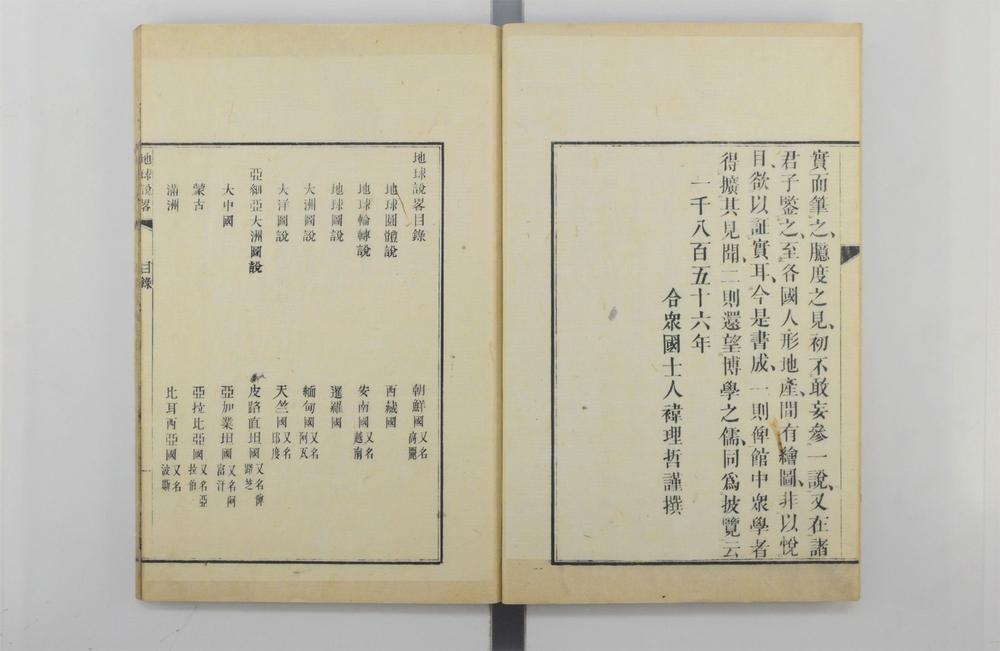 實而筆之、臆度之見、初不敢妄參一說、又在諸
君子鑒之、至各國人形地產、間有繪圖、非以悅
目、欲以証實耳、今是書成、一則俾館中衆學者
得擴其見聞、二則還望博學之儒、同爲披覽云
一千八百五十六年
合衆國士人褘理哲謹撰
地球說畧目錄
地球圓體說
地球輪轉說
地球圖說
大洲圖說
大洋圖說
亞細亞大洲圖說
大中國
蒙古
滿洲
朝鮮國又名高麗
西藏國
安南國又名越南
暹羅國
緬甸國又名阿瓦
天竺國又名印度
皮路直坦國又名俾路芝
亞加業坦國又名阿富汗
亞拉比亞國又名亞拉伯
比耳西亞國又名波斯
地球說畧
目錄